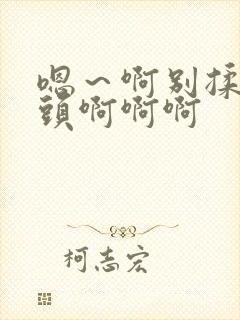 嗯～啊别揉
頭啊啊啊
柯志宏